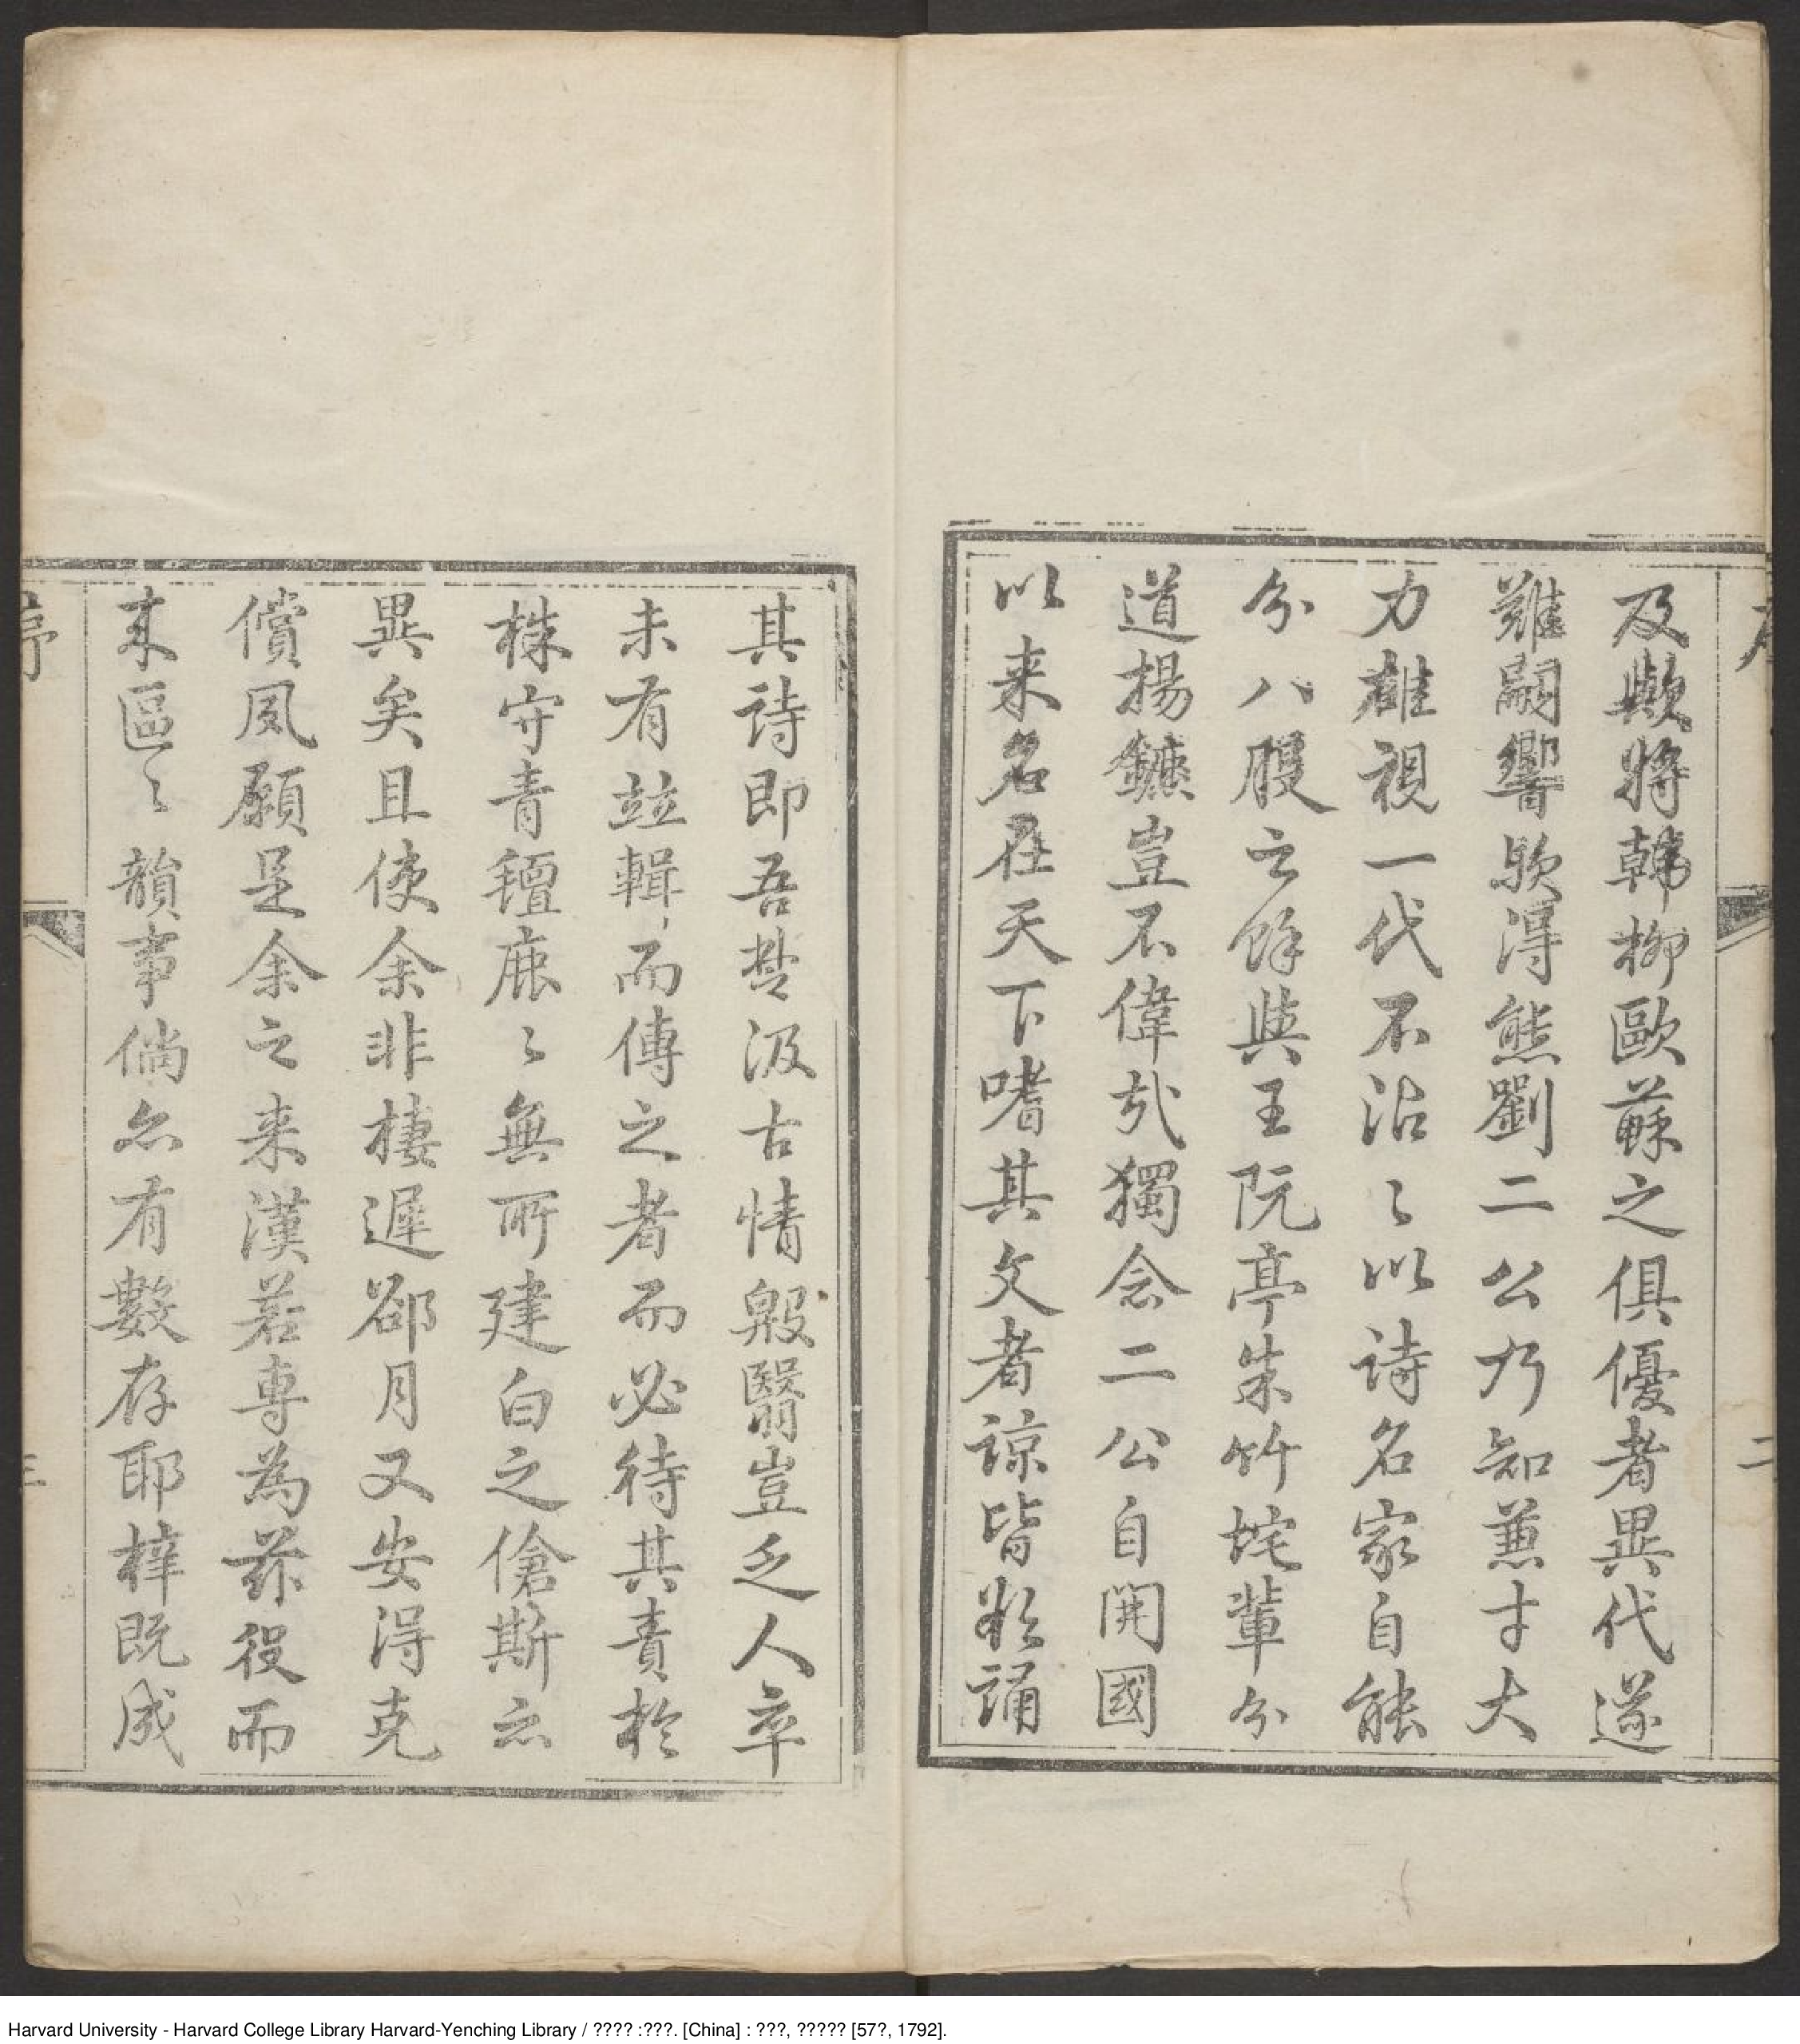 及歟將韓柳歐蘇之俱優者異代遂
難嗣響歟得熊劉二公乃知兼才大
力雄視一代不沾〻以詩名家自能
分八股之餘與王阮亭朱竹垞輩分
道揚鑣豈不偉哉獨念二公自開國
以来名在天下嗜其文者諒皆欲誦
二
其詩即吾楚汲古情殷翳豈乏人卒
未有竝輯而傳之者而必待其責於
株守青氊鹿〻無所建白之傖斯亦
異矣且使余非棲遲郤月又安得克
償夙願是余之来漢若專為茲役而
来區〻韻事倘亦有數存耶梓既成
序
三
Harvard University - Harvard College Library Harvard-Yenching Library / ???? :???. [China] : ???, ????? [57?, 1792].